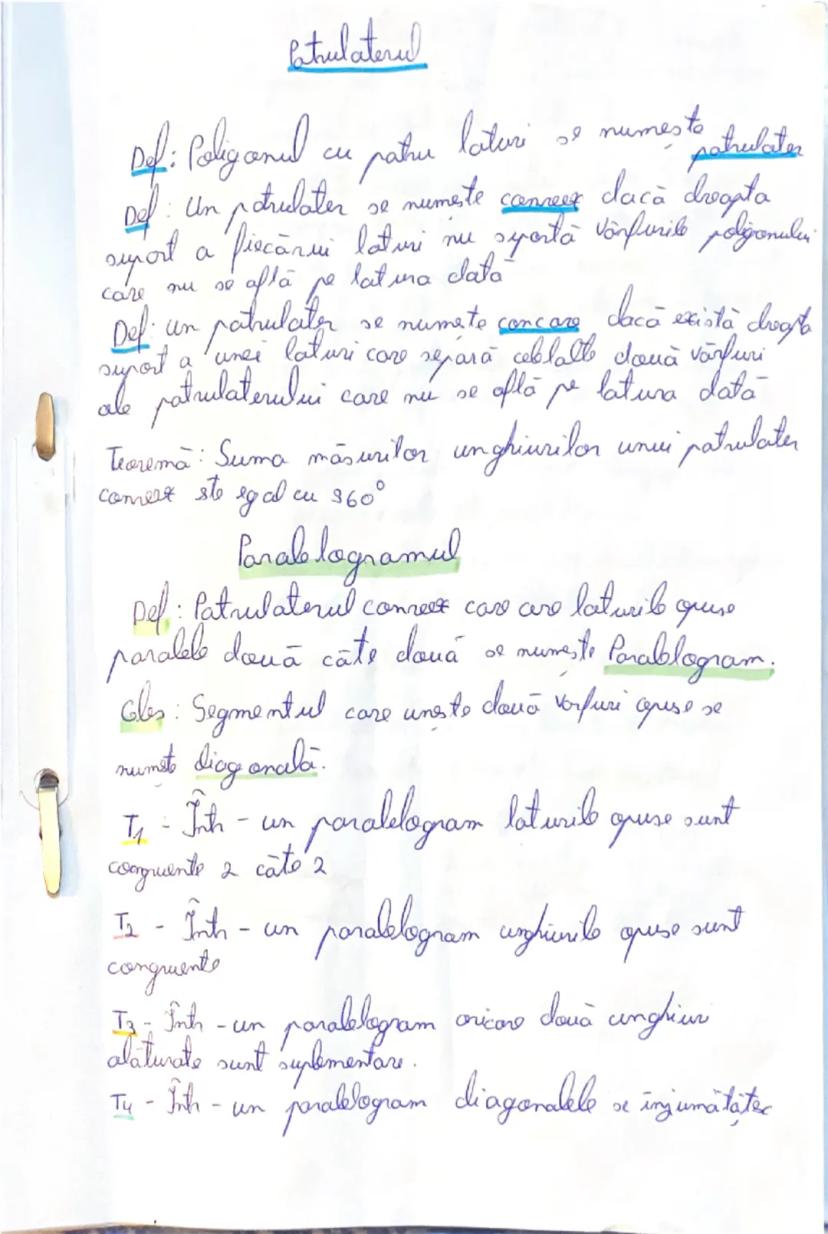 Patrulaterul
Def: Poligonul cu patru laturi se numește patrulater
Def: Un patrulater se numește convex dacă dreapta
suport a fiecărui laturi nu sepată vârfurile poligonului
care nu se află pe latura dată
Def: un patrulater se numește concave dacă există dreapta
suport a unei laturi care separă celelalte două vârfuri
ale patrulaterului care nu se află pe latura dată
Teoremă: Suma măsurilor unghiurilor unui patrulater
convex este egal cu 360°
Paralelogramul
Def: Patrulaterul convex care are laturile opuse
paralele două câte două se numește Paralelogram.
Obs: Segmentul care unește două vârfuri opuse se
numește diagonală.
T1 - Într-un paralelogram laturile opuse sunt
congruente 2 câte 2
T2 - Într-un paralelogram unghiurile opuse sunt
congruente
T3 - Într-un paralelogram oricare două unghiuri
alăturate sunt suplementare.
T4 - Într-un paralelogram diagonalele se înjumătățesc